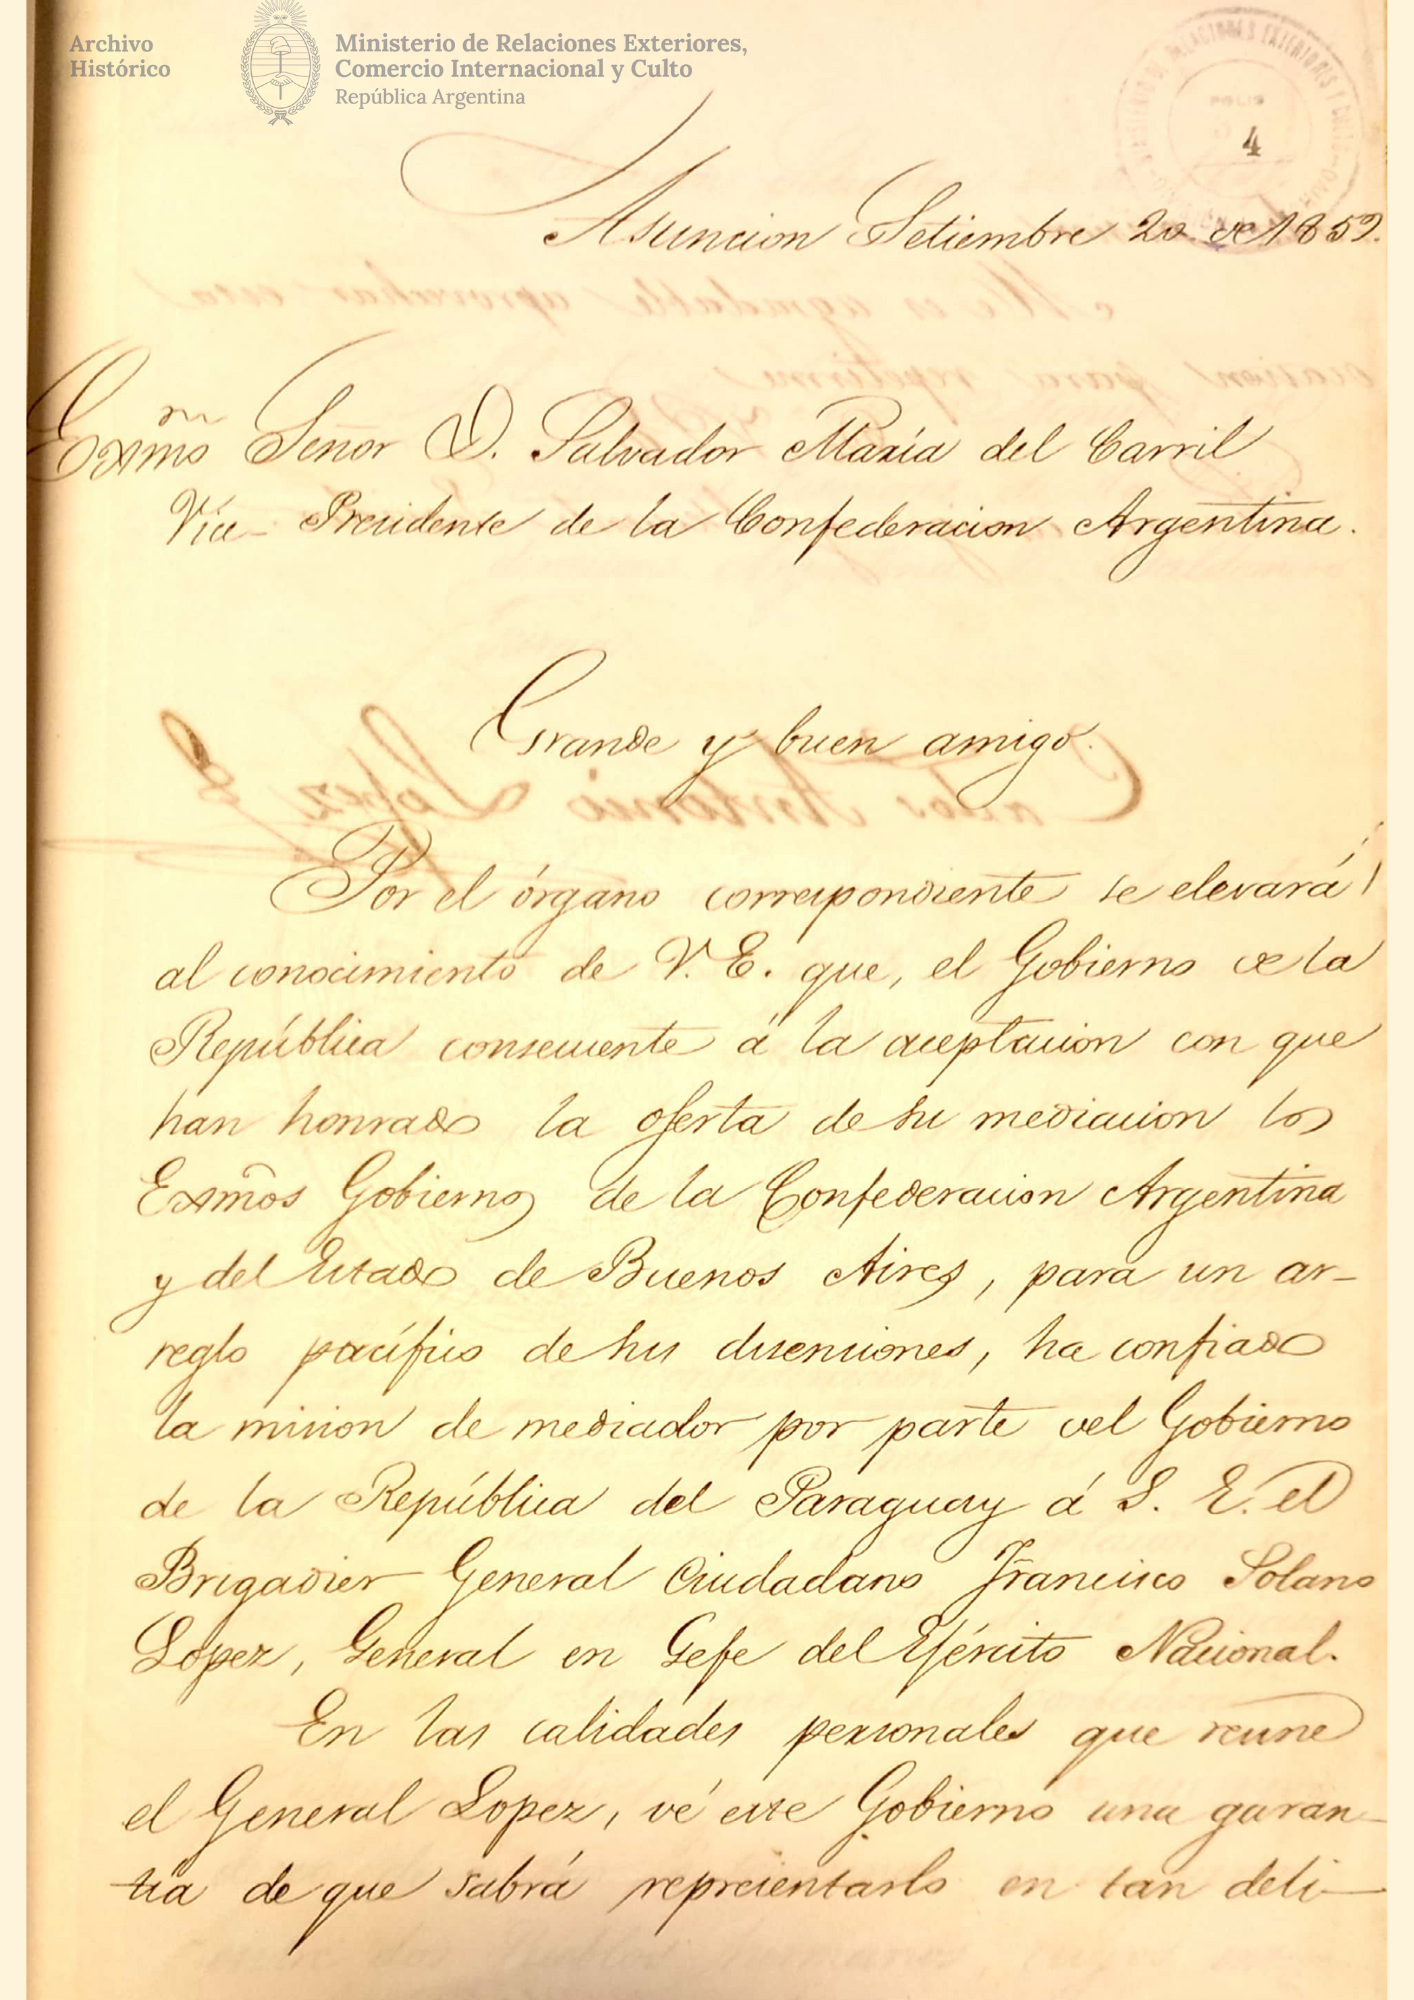 Archivo
Histórico
Ministerio de Relaciones Exteriores,
Comercio Internacional y Culto
República Argentina
4
Asuncion Setiembre 20 de 1859.
Exmo Señor D. Salvador María del Carril
Vice-Presidente de la Confederacion Argentina.
Grande y buen amigo.
Por el órgano correspondiente se elevará
al conocimiento de V. E. que, el Gobierno de la
República consecuente á la aceptacion con que
han honrado la oferta de su mediacion los
Exmos Gobiernos de la Confederacion Argentina
y del Estado de Buenos Aires, para un ar-
reglo pacífico de sus disenciones, ha confiado
la mision de mediador por parte del Gobierno
de la República del Paraguay á S. E. el
Brigadier General Ciudadano Francisco Solano
Lopez, General en Gefe del Ejército Nacional.
En las calidades personales que reune
el General Lopez, vé este Gobierno una garan-
tia de que sabrá representarlo en tan deli-